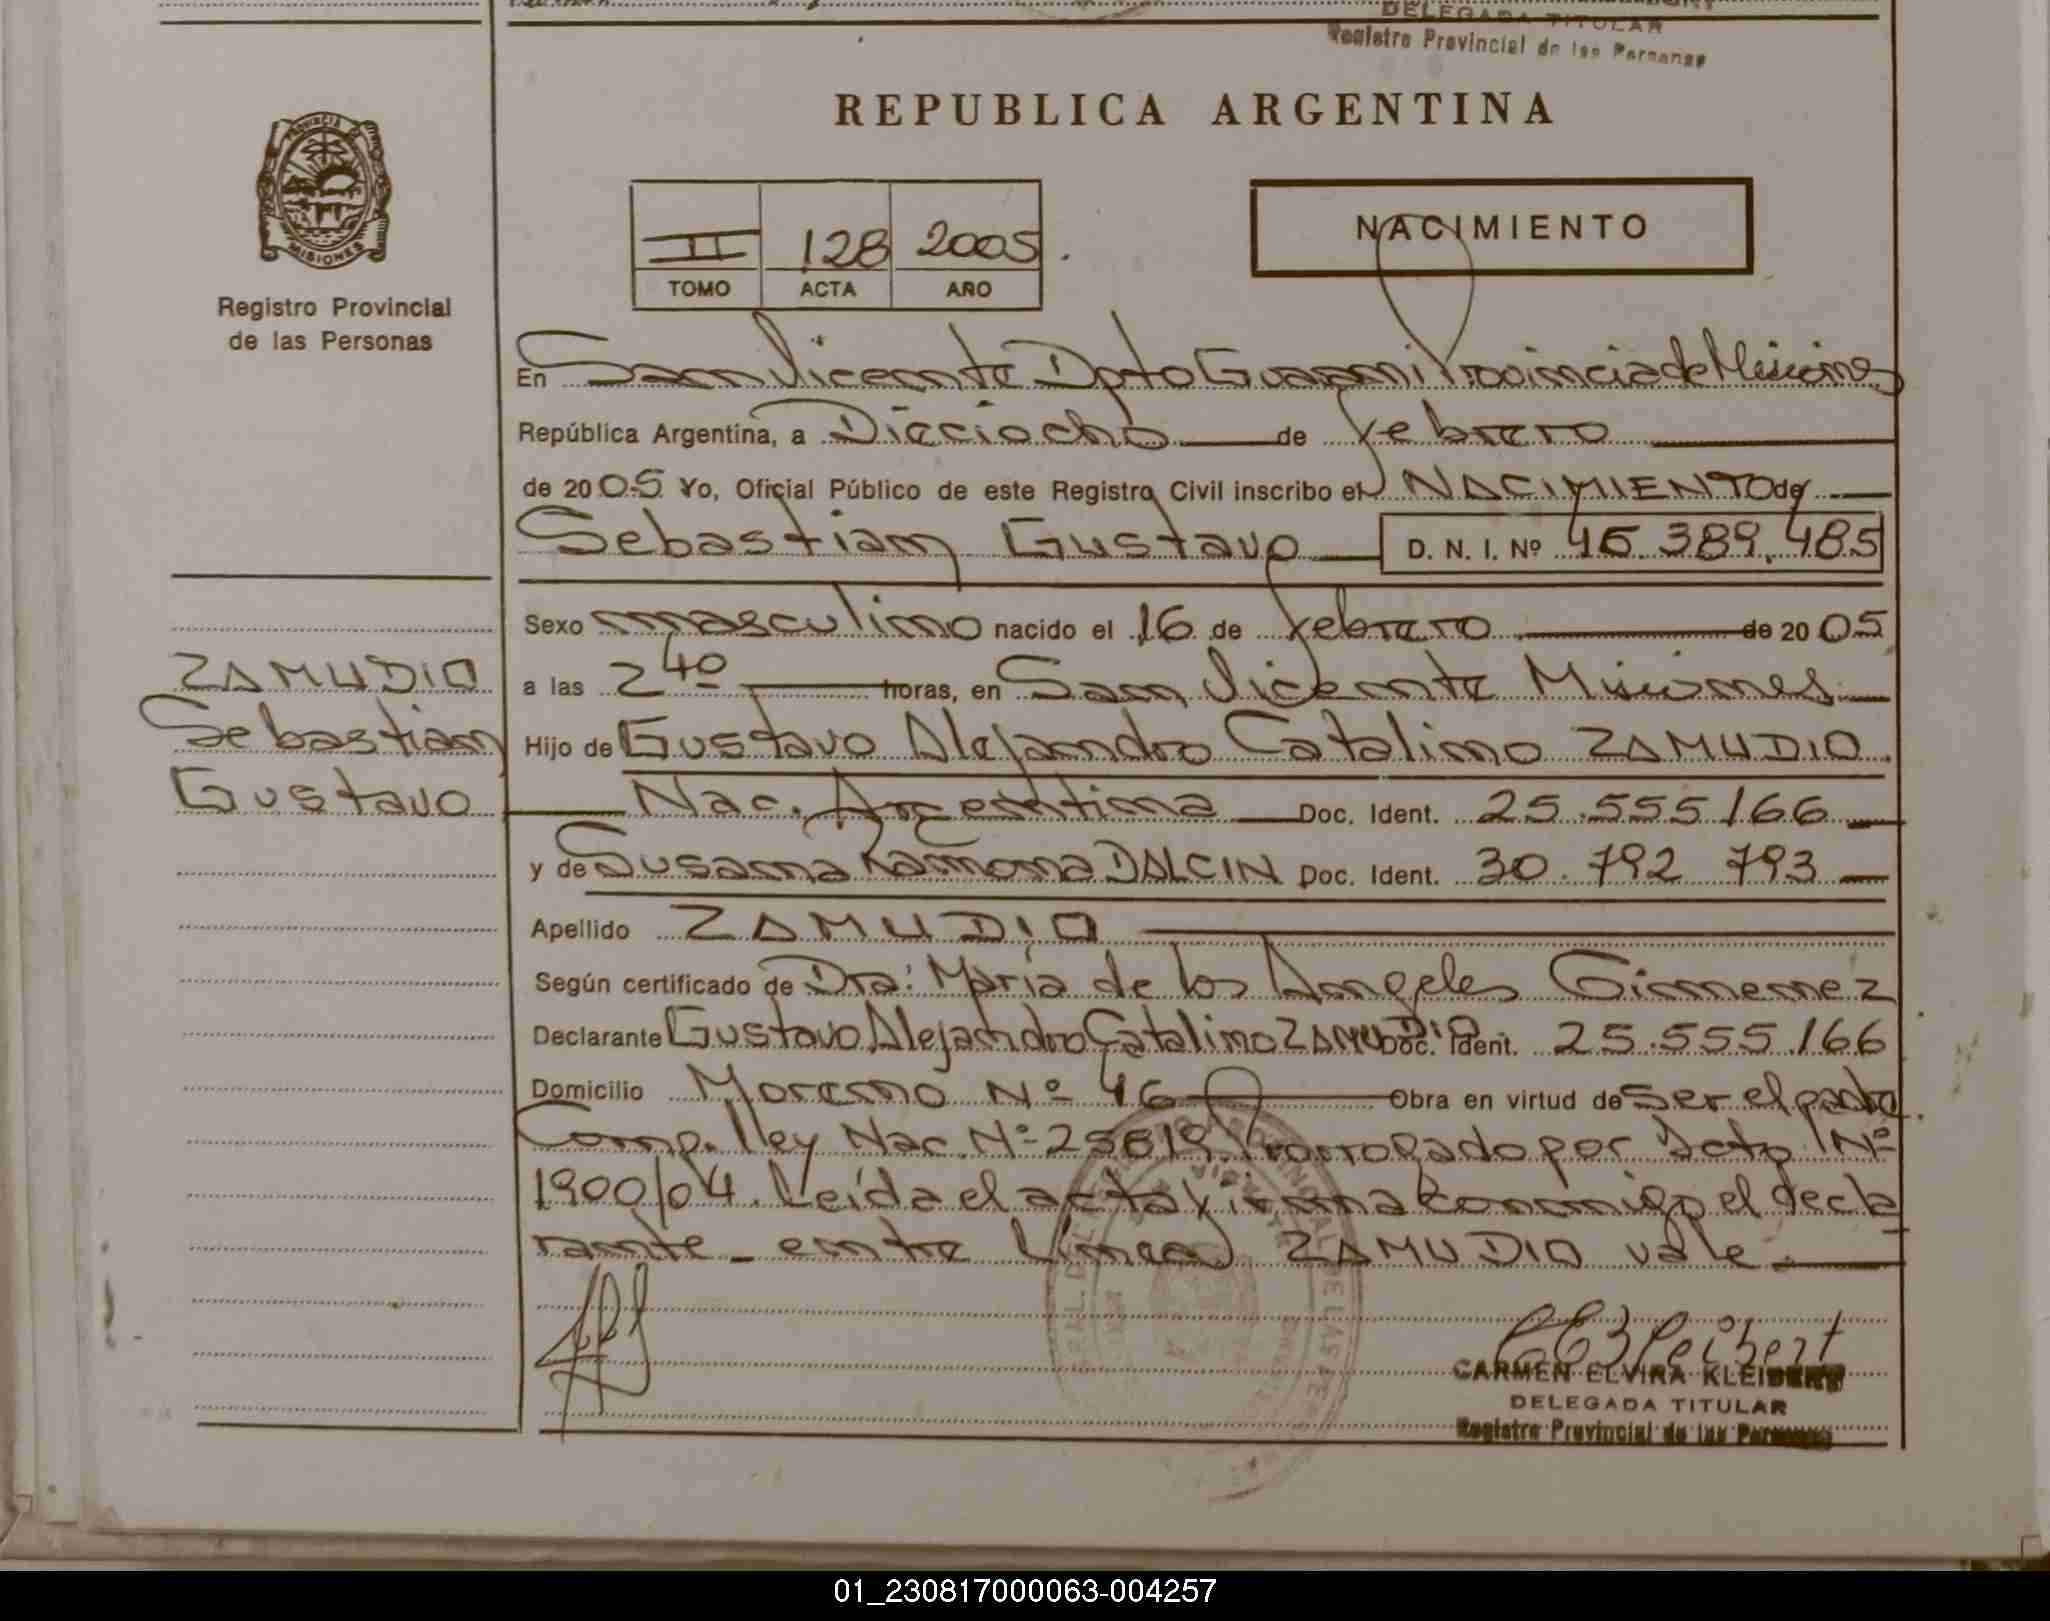 DELEGADA TITULAR
Registro Provincial de las Personas
REPUBLICA ARGENTINA
PROVINCIA DE
MISIONES
Registro Provincial
de las Personas
II 128 2005.
TOMO ACTA AÑO
NACIMIENTO
En San Vicente Dpto Guarani Provincia de Misiones
República Argentina, a Dieciocho de febrero
de 2005 Yo, Oficial Público de este Registro Civil inscribo el NACIMIENTO de
Sebastian Gustavo D. N. I. Nº 46.389.485
Sexo masculino nacido el 16 de febrero de 2005
a las 2 40 horas, en San Vicente Misiones
Hijo de Gustavo Alejandro Catalino ZAMUDIO
Nac. Argentina Doc. Ident. 25.555.166
y de Susana Ramona DALCIN Doc. Ident. 30.792 793
Apellido ZAMUDIO
Según certificado de Dra: María de los Angeles Gimenez
Declarante Gustavo Alejandro Catalino ZAMUDIO Doc. Ident. 25.555.166
Domicilio Moreno Nº 46 Obra en virtud de ser el padre
Comp. ley Nac. Nº 25819. Prorrogado por Dcto Nº
1900/04. Leída el acta firma conmigo el decla
rante_ entre linea ZAMUDIO vale
ZAMUDIO
Sebastian
Gustavo
CARMEN ELVIRA KLEIBERT
DELEGADA TITULAR
Registro Provincial de las Personas
01_230817000063-004257